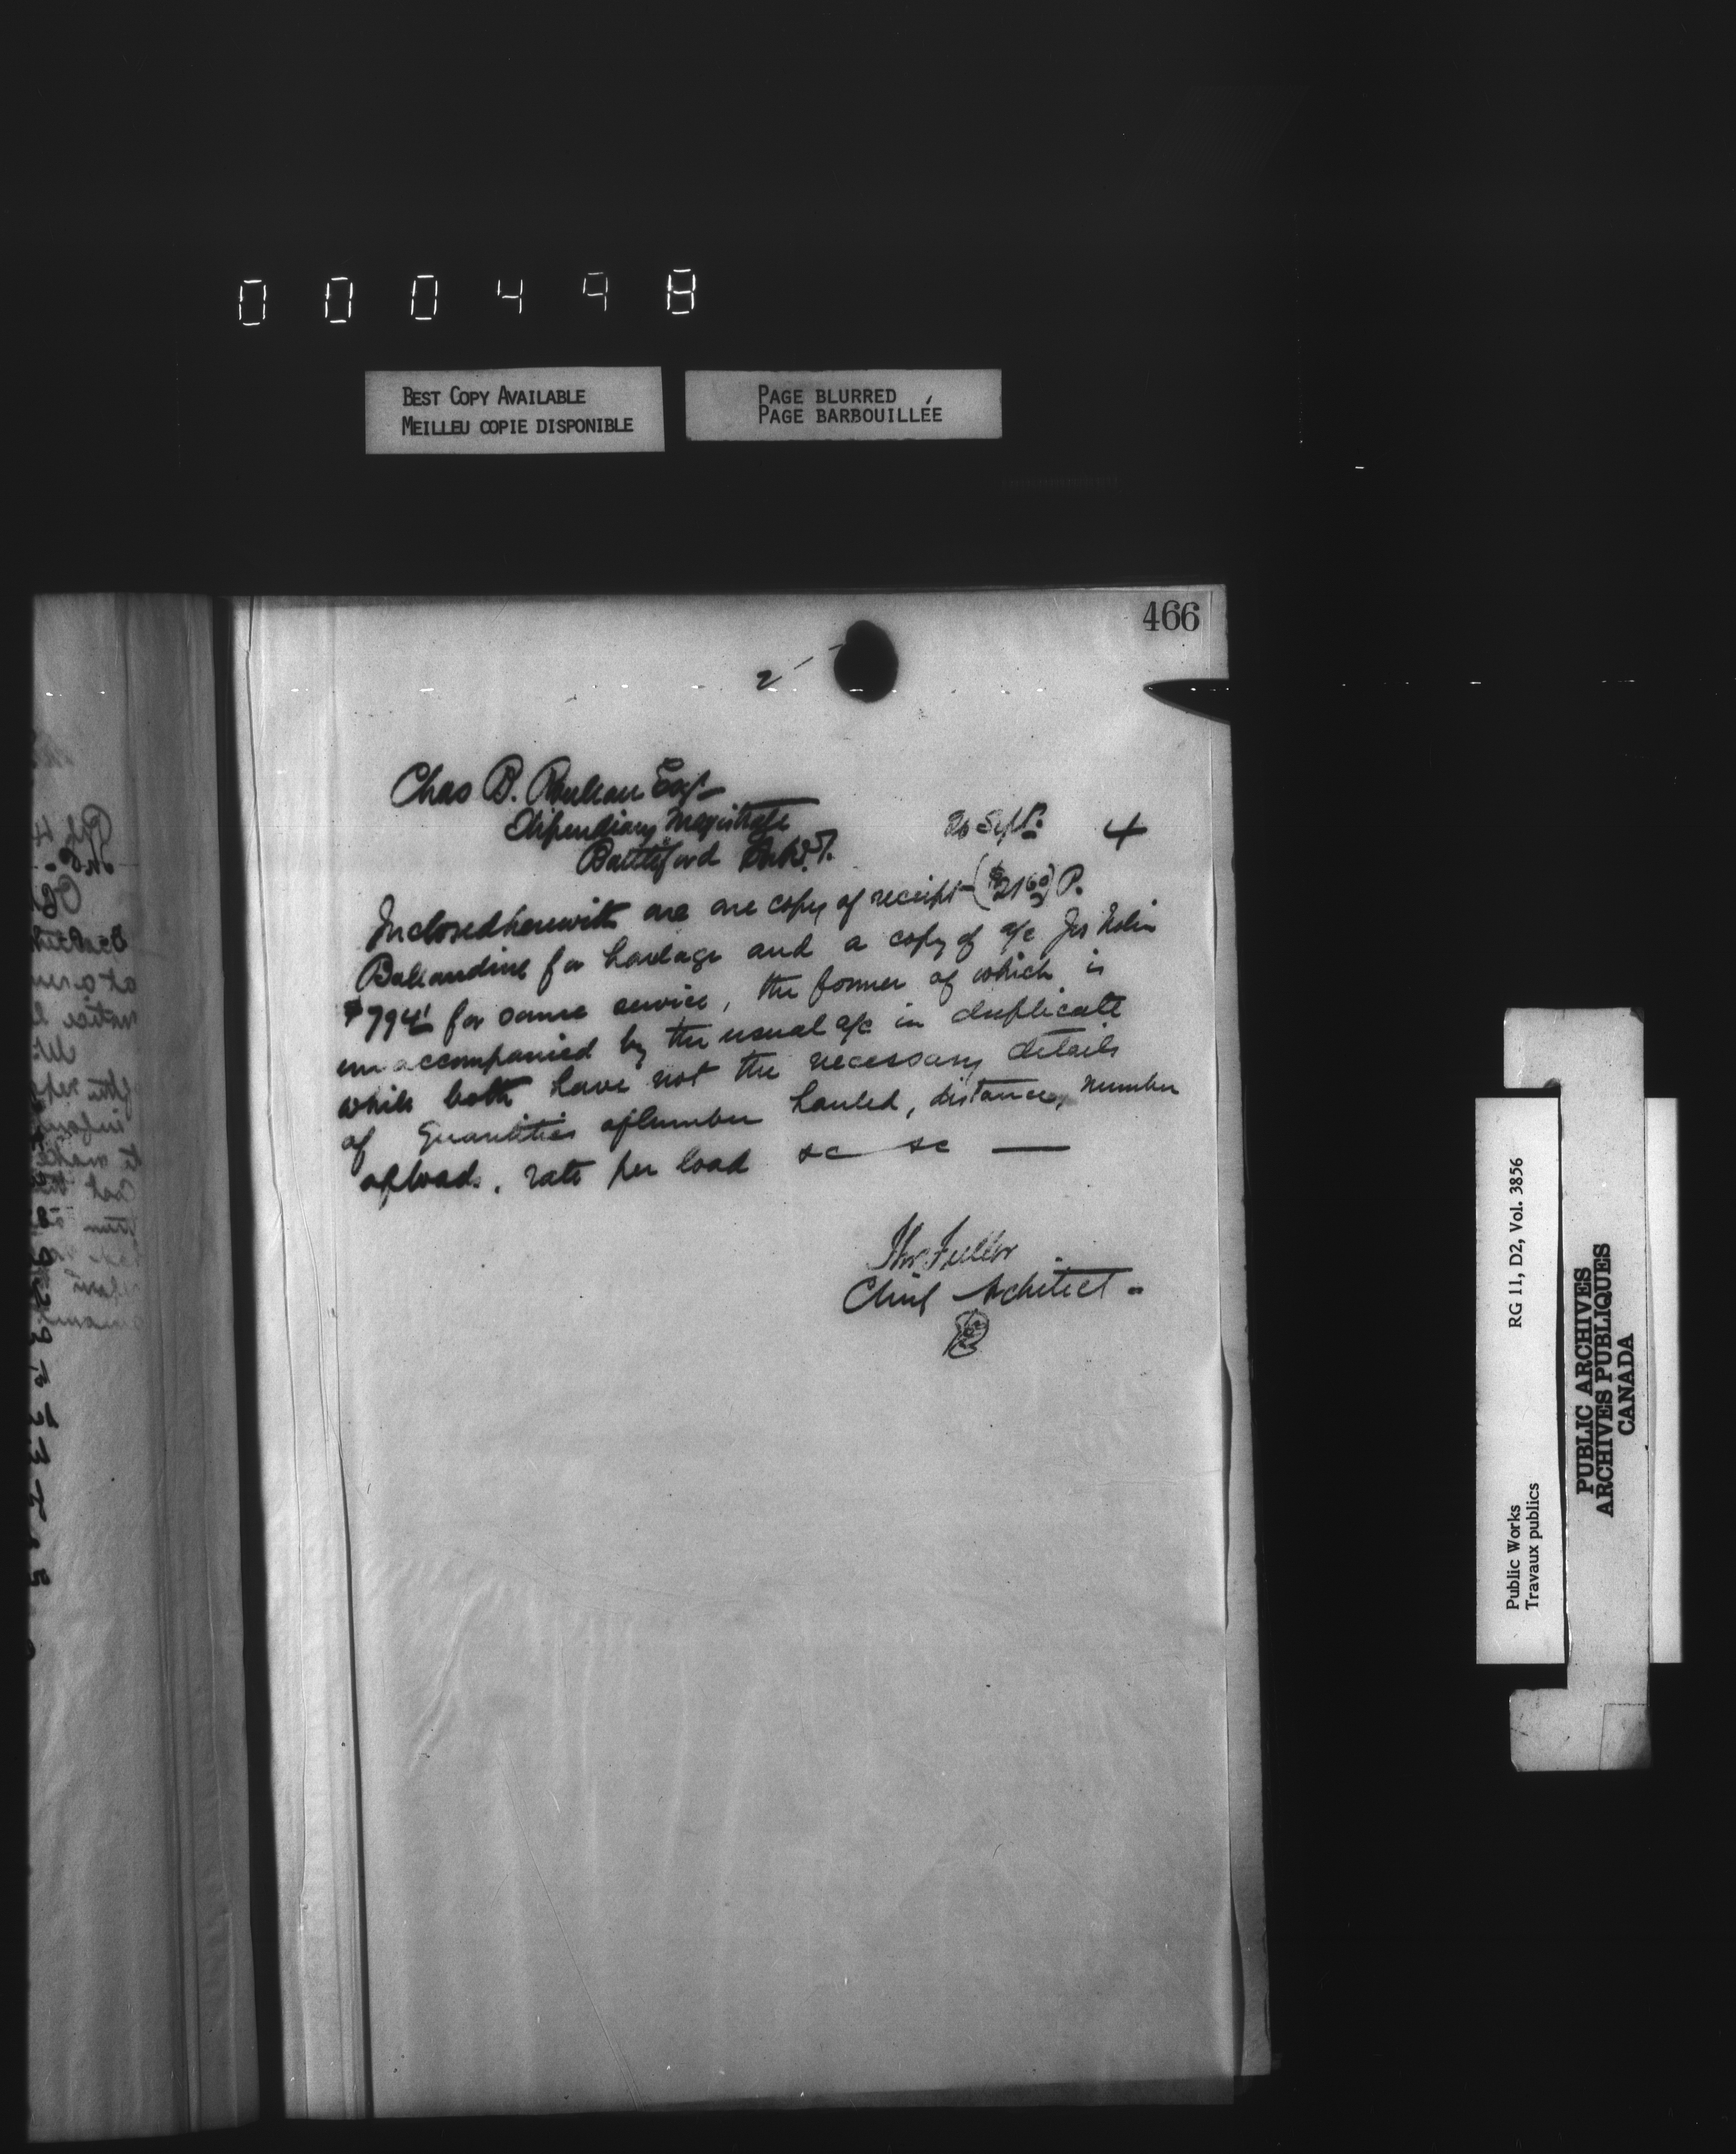 000498
BEST COPY AVAILABLE
MEILLEU COPIE DISPONIBLE
PAGE BLURRED
PAGE BARBOUILLÉE
466
2
Chas B. Rouleau Esq
Stipendiary Magistrate
Battleford N.W.T.
26 Sept. 4
Inclosed herewith are one copy of receipt ($2160) P.
Ballandine for haulage and a copy of a/c Jas
for same service, the former of which is
unaccompanied by the usual a/c in duplicate
while both have not the necessary details
of Quantities of lumber hauled, distance, number
of loads, rate per load &c &c —
Thos Fuller
Chief Architect
Public Works
Travaux publics
RG 11, D2, Vol. 3856
PUBLIC ARCHIVES
ARCHIVES PUBLIQUES
CANADA